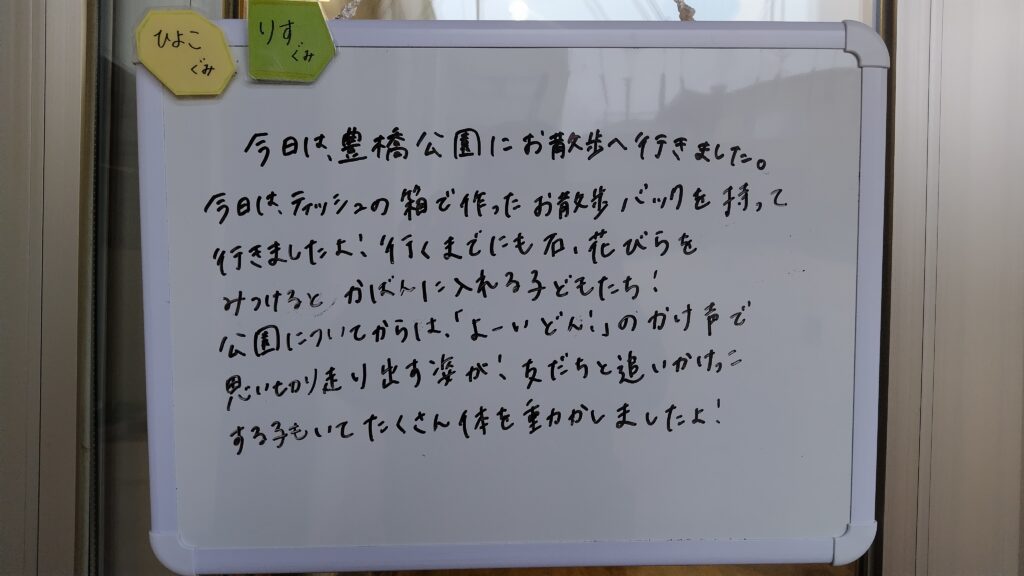 ひよこ
ぐみ
りす
ぐみ
今日は、豊橋公園にお散歩へ行きました。
今日は、ティッシュの箱で作ったお散歩バックを持って
行きましたよ!行くまでにも石、花びらを
みつけると かばんに入れる子どもたち!
公園についてからは、「よーいどん!」のかけ声で
思い切り走り出す姿が!友だちと追いかけっこ
する子もいて たくさん体を動かしましたよ!